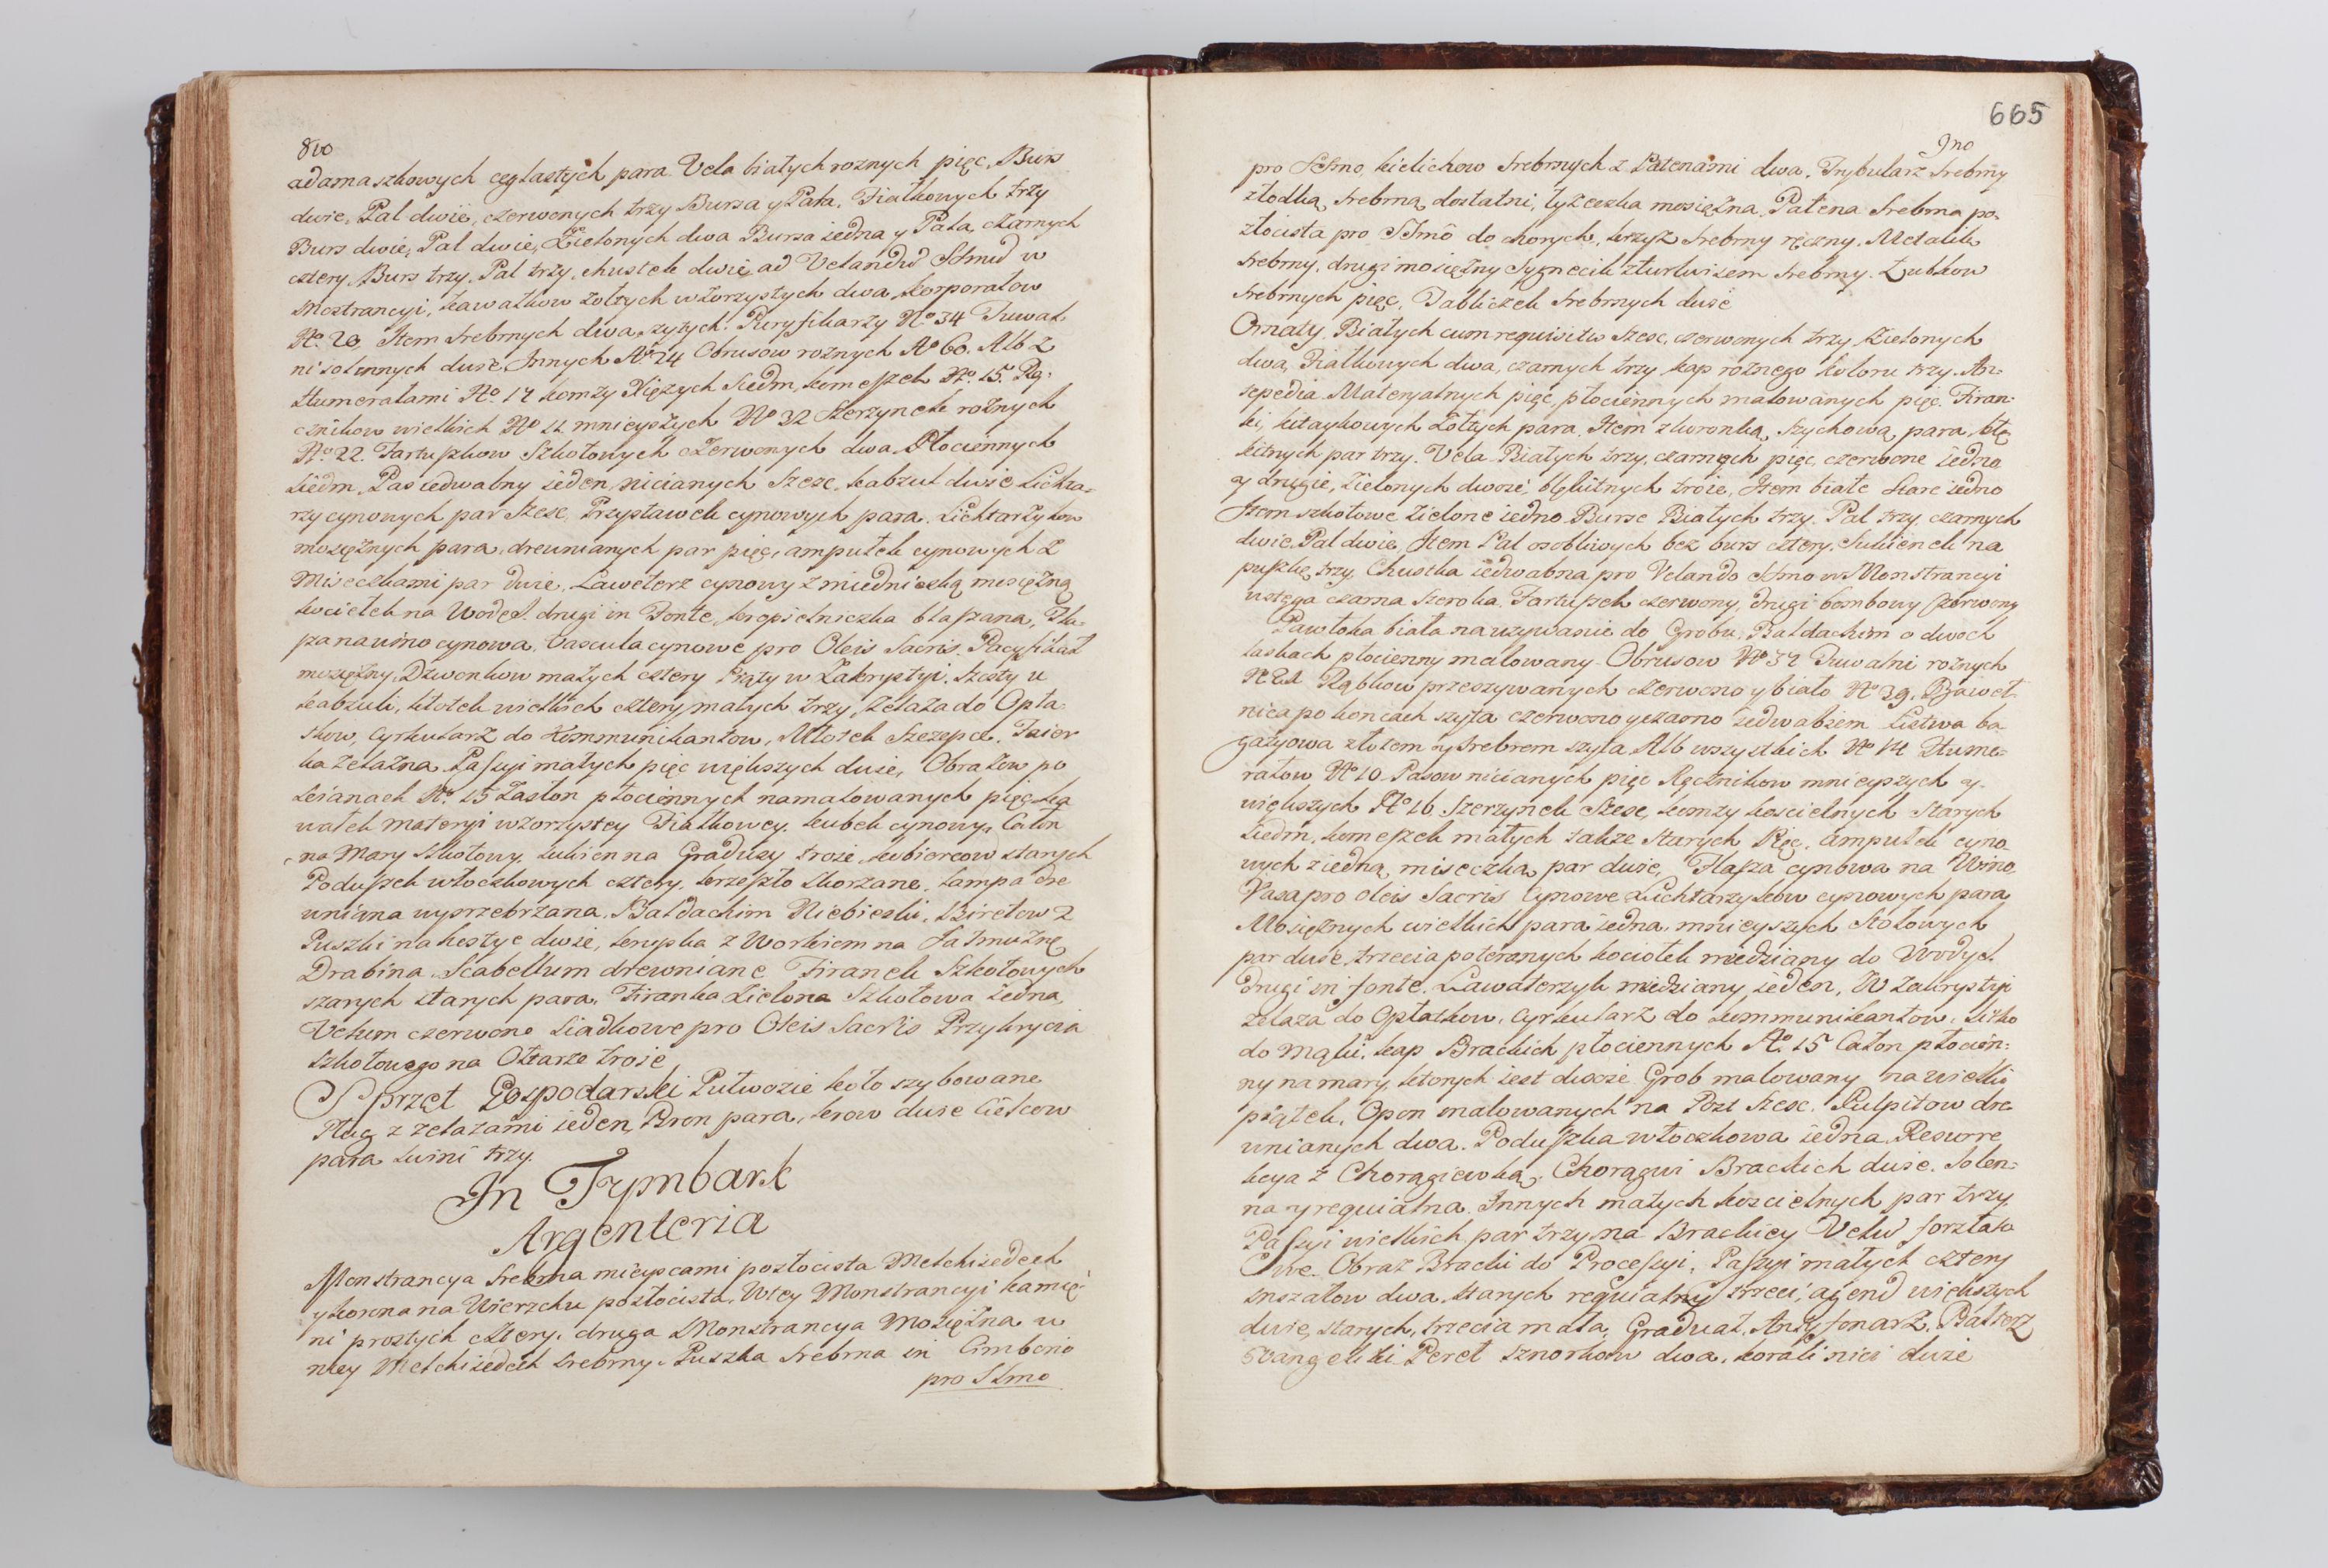 adamaszkowych ceglastych para Vela białych roznych pięc, Burs
dwie, Pal dwie, czerwonych trzy Bursa y Pala, Fiałkowych trzy
Burs dwie, Pal dwie, Zielonych dwa Bursa iedna y Pala, czarnych
cztery, Burs trzy, Pal trzy, chustek dwie ad Velandū SSmū w
Mostrancyi, kawałkow żołtych wzorzystych dwa, korporałow
No. 20, Item srebrnych dwa, szytych. Puryfikarzy No 34 Tuwal
ni solennych dwie Innych No 24 Obrusow roznych No 60. Alb z
Humerałami No. 17 komzy Xięzych siedm, komeszek No. 15. Rę-
cznikow wielkich No 11 mnieyszych No 32 Szerzynek roznych
No 22. Fartuszkow Szkotowych czerwonych dwa, Płociennych
siedm, Pas iedwabny ieden, nicianych Szesc, kabzul dwie Lichta-
rzy cynowych par szesc, Przystawek cynowych para. Lichtarzykow
mosięznych para, drewnianych par pięc, ampułek cynowych z
Miseczkami par dwie, Laweterz cynowy z miedniczką mosięzną
kociełek na Wodę S. drugi in Fonte, kropielniczka blaszana, Fla-
sza na wino cynowa, Vascula cynowe pro Oleis Sacris. Pacyfikał
mosięzny, Dzwonkow małych cztery Piąty w Zakrystyi, szosty u
kabzuli, kłotek wielkich cztery małych trzy, zelaza do Opła-
tkow, Cyrkularz do Kommunikantow, Młotek Szczypce, Faier
ka zelazna Passyi małych pięc większych dwie, Obrazow po
scianach No. 15 Zasłon płociennych namalowanych pięc ka
wałek materyi wzorzystey Fiałkowey, kubek cynowy, Całun
na Mary szkotowy, sukien na Gradusy troie, kobiercow starych
Poduszek włoczkowych cztery, krzesło skorzane, Lampa dre
wniana wysrebrzana, Baldachim Niebieski, Biretow 2
Puszki na hostye dwie, kruszka z Workiem na Jałmuznę
Drabina, Scabellum drewniane Firanek Szkotowych
szarych starych para, Firanka Zielona Szkotowa iedna,
Velum czerwone siadkowe pro Oleis Sacris Przykrycia
szkotowego na Ołtarze troie
Sprzęt Gospodarski Pułwozie koło szybowane
Pług z zelazami ieden, Bron para, krow dwie Cielcow
para swini trzy.
In Tymbark
Argenteria
Monstrancya srebrna mieyscami pozłocista Melchisedech
y korona na Wierzchu pozłocista, w tey Monstrancyi kamię-
ni prostych cztery, druga Monstrancya Mosięzna w
niey Melchisedech srebrny, Puszka srebrna in Cimborio
pro SSmo
665
pro SSmo, kielichow srebrnych z Patenami dwa, Trybularz srebrny
z łodką srebrną dostatni, łyzeczka mosięzna. Patena srebrna po-
złocista pro SSmo do chorych, krzyz srebrny ręczny. Metalik
srebrny, drugi mosięzny Sygnecik z turkusem srebrny. Ząbkow
srebrnych pięc, Tabliczek srebrnych dwie
Ornaty. Białych cum requisitis szesc, czerwonych trzy, Zielonych
dwa, Fiałkowych dwa, czarnych trzy, kap roznego koloru trzy. An-
tepedia. Materyalnych pięc, płociennych malowanych pięc. Firan-
ki, kitaykowych żołtych para. Item z koronką Szychową para, błę
kitnych par trzy. Vela Białych trzy, czarnych pięc, czerwone iedno
y drugie, Zielonych dwoie, błękitnych troie, Item białe stare iedno
Item szkotowe zielone iedno. Burse Białych trzy. Pal trzy, czarnych
dwie, Pal dwie, Item Pal osobliwych bez burs cztery. Sukienek na
puszkę trzy, Chustka iedwabna pro Velando SSmo w Monstrancyi
wstęga czarna szeroka. Fartuszek czerwony, drugi bombowy czerwony
Pawłoka biała na uzywanie do Grobu. Baldachim o dwoch
laskach płocienny malowany. Obrusow No 32 Tuwalni roznych
No 21 Rąbkow przeszywanych czerwono y biało No 39. Bawet-
nica po koncach szyta czerwono y czarno iedwabiem Listwa ba
gazyowa złotem y srebrem szyta Alb wszystkich No 14 Hume-
rałow No 10 Pasow nicianych pięc Ręcznikow mnieyszych y
większych No 16. Szerzynek Szesc, komzy koscielnych starych
siedm, komeszek małych takze starych Pięc, ampułek cyno-
wych z iedną miseczką par dwie, Flasza cynowa na Wino.
Vasa pro oleis Sacris Cynowe Lichtarzykow cynowych para
Mosięznych wielkich para iedna, mnieyszych stołowych
par dwie, trzecia poteranych kociołek miedziany do Wody S.
drugi in fonte. Lawaterzyk miedziany ieden, W Zakrystyi
zelaza do Opłatkow, Cyrkularz do kommunikantow, sitko
do mąki, kap Brackich płociennych No. 15 Całon płocien-
ny na mary, ktorych iest dwoie Grob malowany na wielki
piątek, Opon malowanych na Post Szesc. Pulpitow dre
wnianych dwa. Poduszka włoczkowa iedna, Resurre
kcya z Chorągiewką. Chorągwi Brackich dwie. Solen-
na y requialna. Innych małych koscielnych par trzy,
Passyi wielkich par trzy, na Brackiey Vela
Obraz Bracki do Processyi, Passyi małych cztery
Mszałow dwa, starych requialny trzeci, agend większych
dwie, starych, trzecia mała, Graduał, Antyfonarz, Psałterz
Ewangeliczki Pereł sznorkow dwa, korali nici dwie